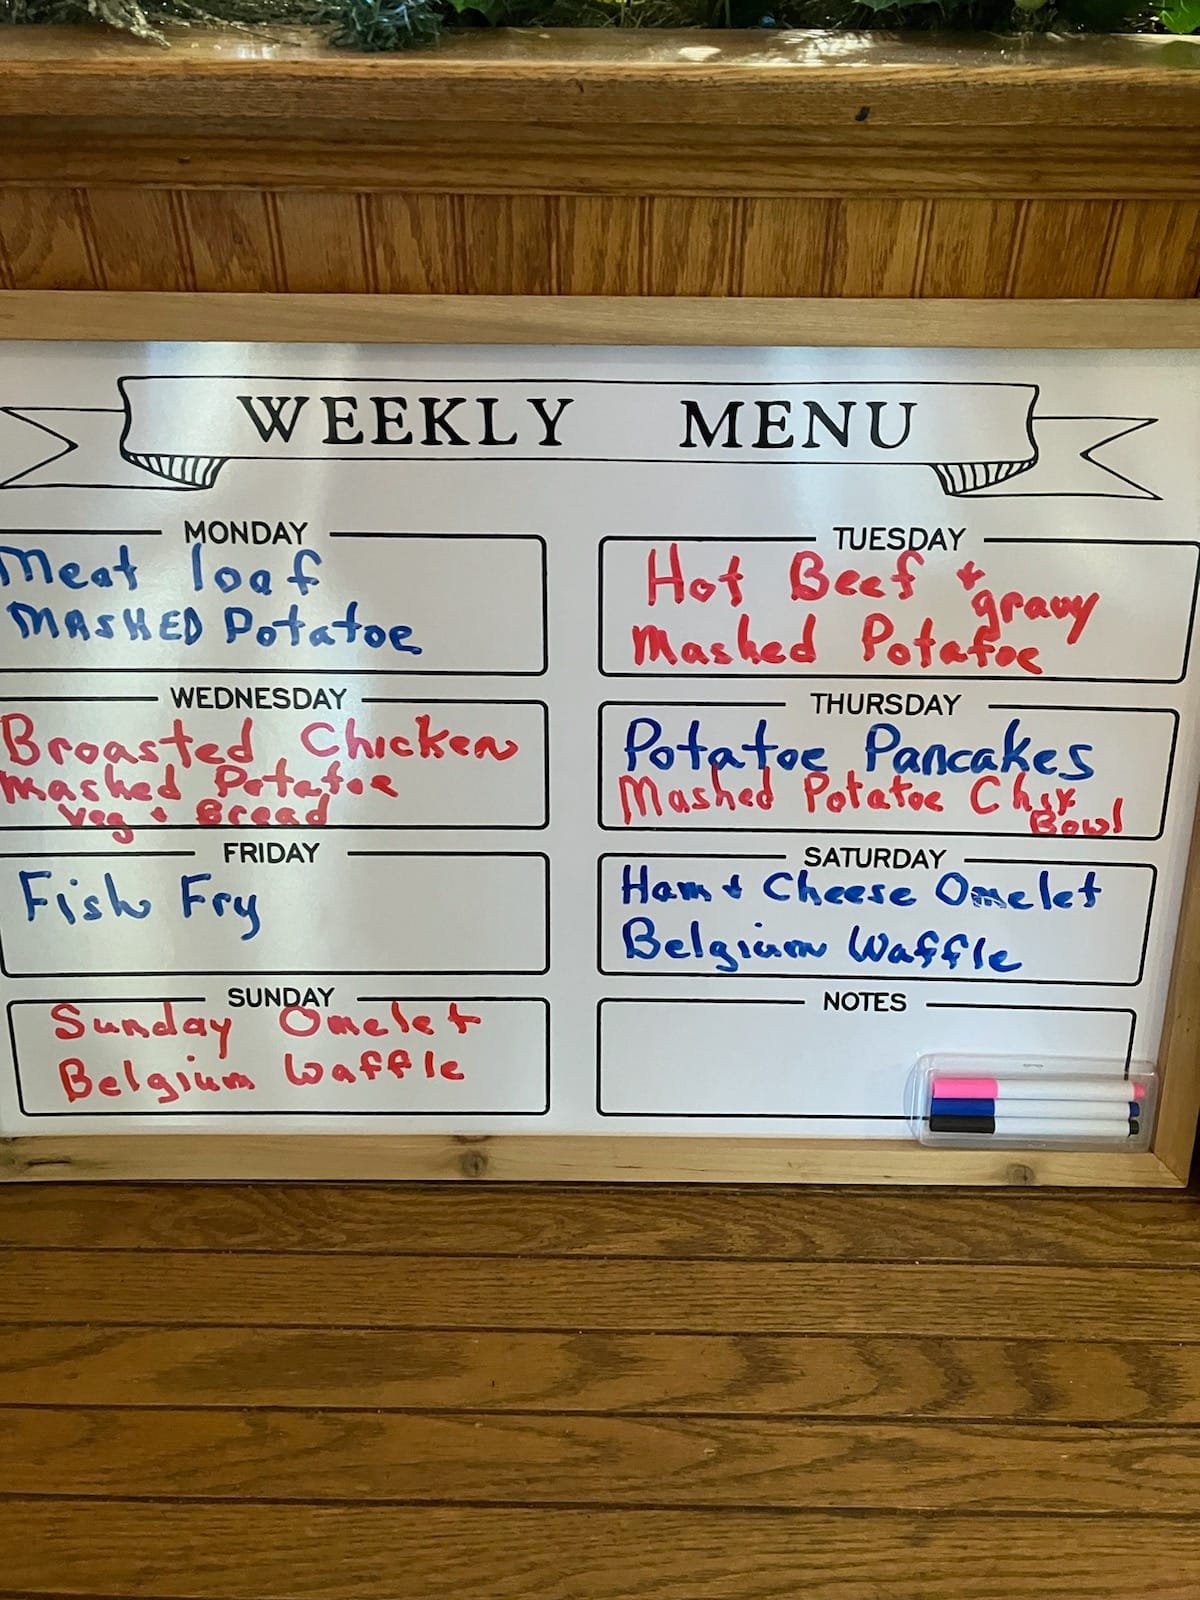 WEEKLY MENU
MONDAY
Meat loaf
MASHED Potatoe
TUESDAY
Hot Beef + gravy
Mashed Potatoe
WEDNESDAY
Broasted Chicken
Mashed Potatoe
Veg + Bread
THURSDAY
Potatoe Pancakes
Mashed Potatoe
Bowl
FRIDAY
Fish Fry
SATURDAY
Ham + Cheese Omelet
Belgium Waffle
SUNDAY
Sunday Omelet
Belgium Waffle
NOTES